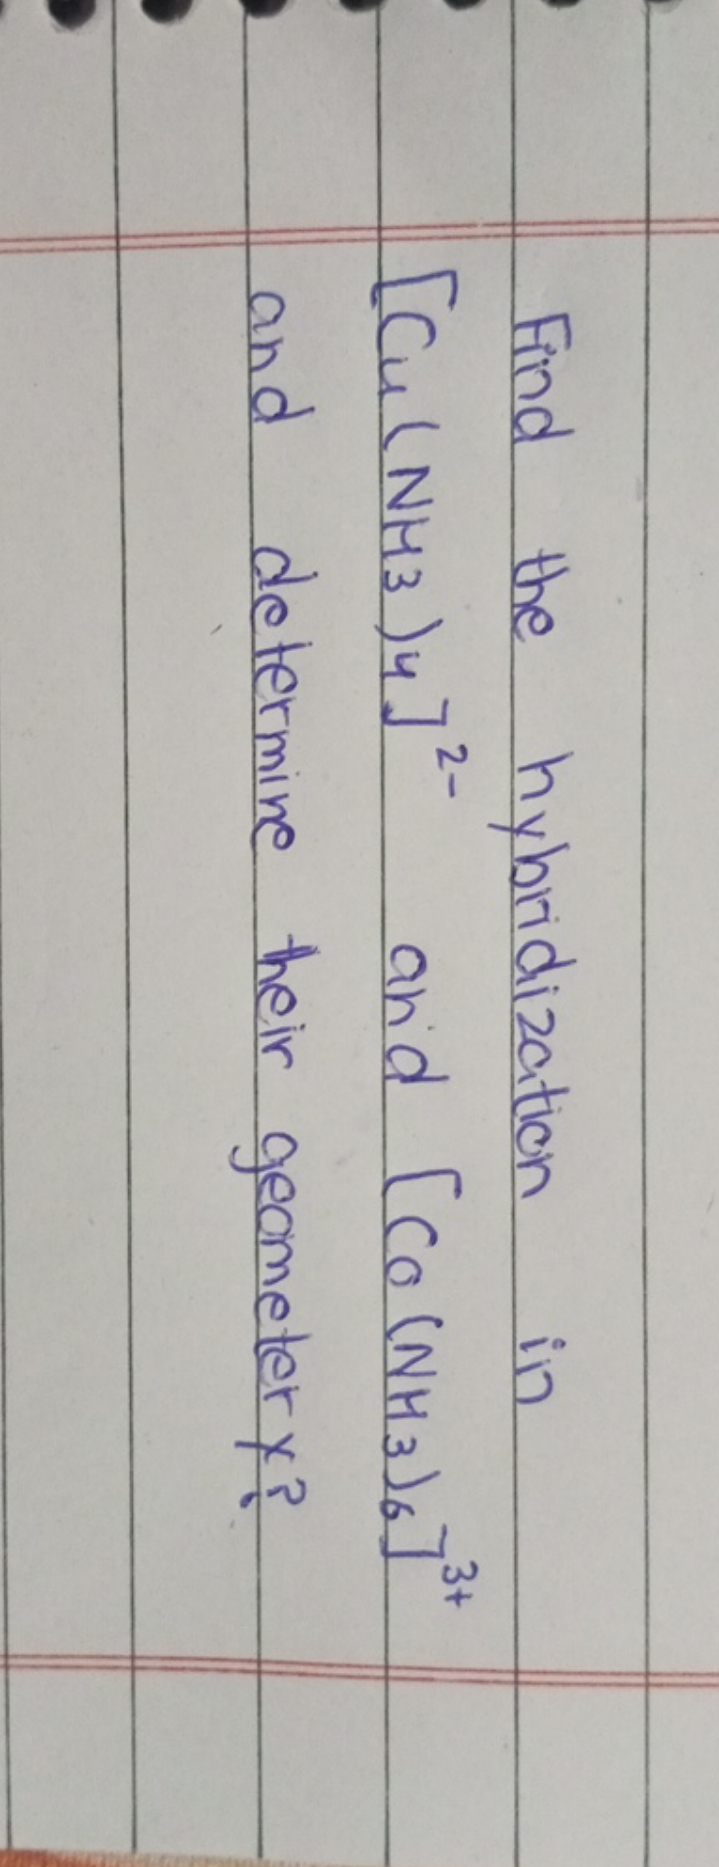 Find the hybridization in
[Cu(NH3)4]²⁻ and [Co(NH3)6]³⁺
and determine their geometery?